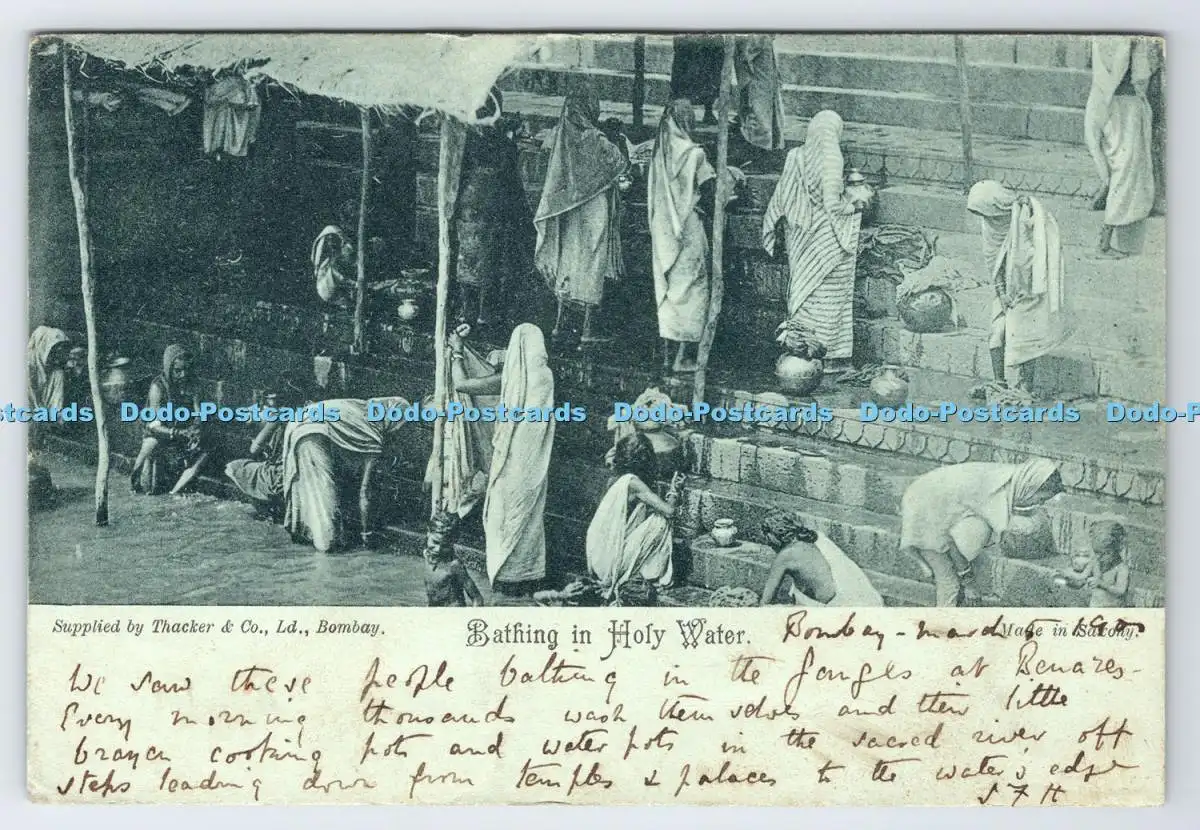 Dodo-Postcards Dodo-Postcards Dodo-Postcards Dodo-Postcards Dodo-Postcards Dodo-Postcards
Supplied by Thacker & Co., Ld., Bombay.
Bathing in Holy Water.
Made in Saxony.
Bombay - march
We saw these people bathing in the Ganges at Benares -
Every morning thousands wash themselves and their little
brazen cooking pots and water pots in the sacred river off
steps leading down from temples & palaces to the water's edge
S F H